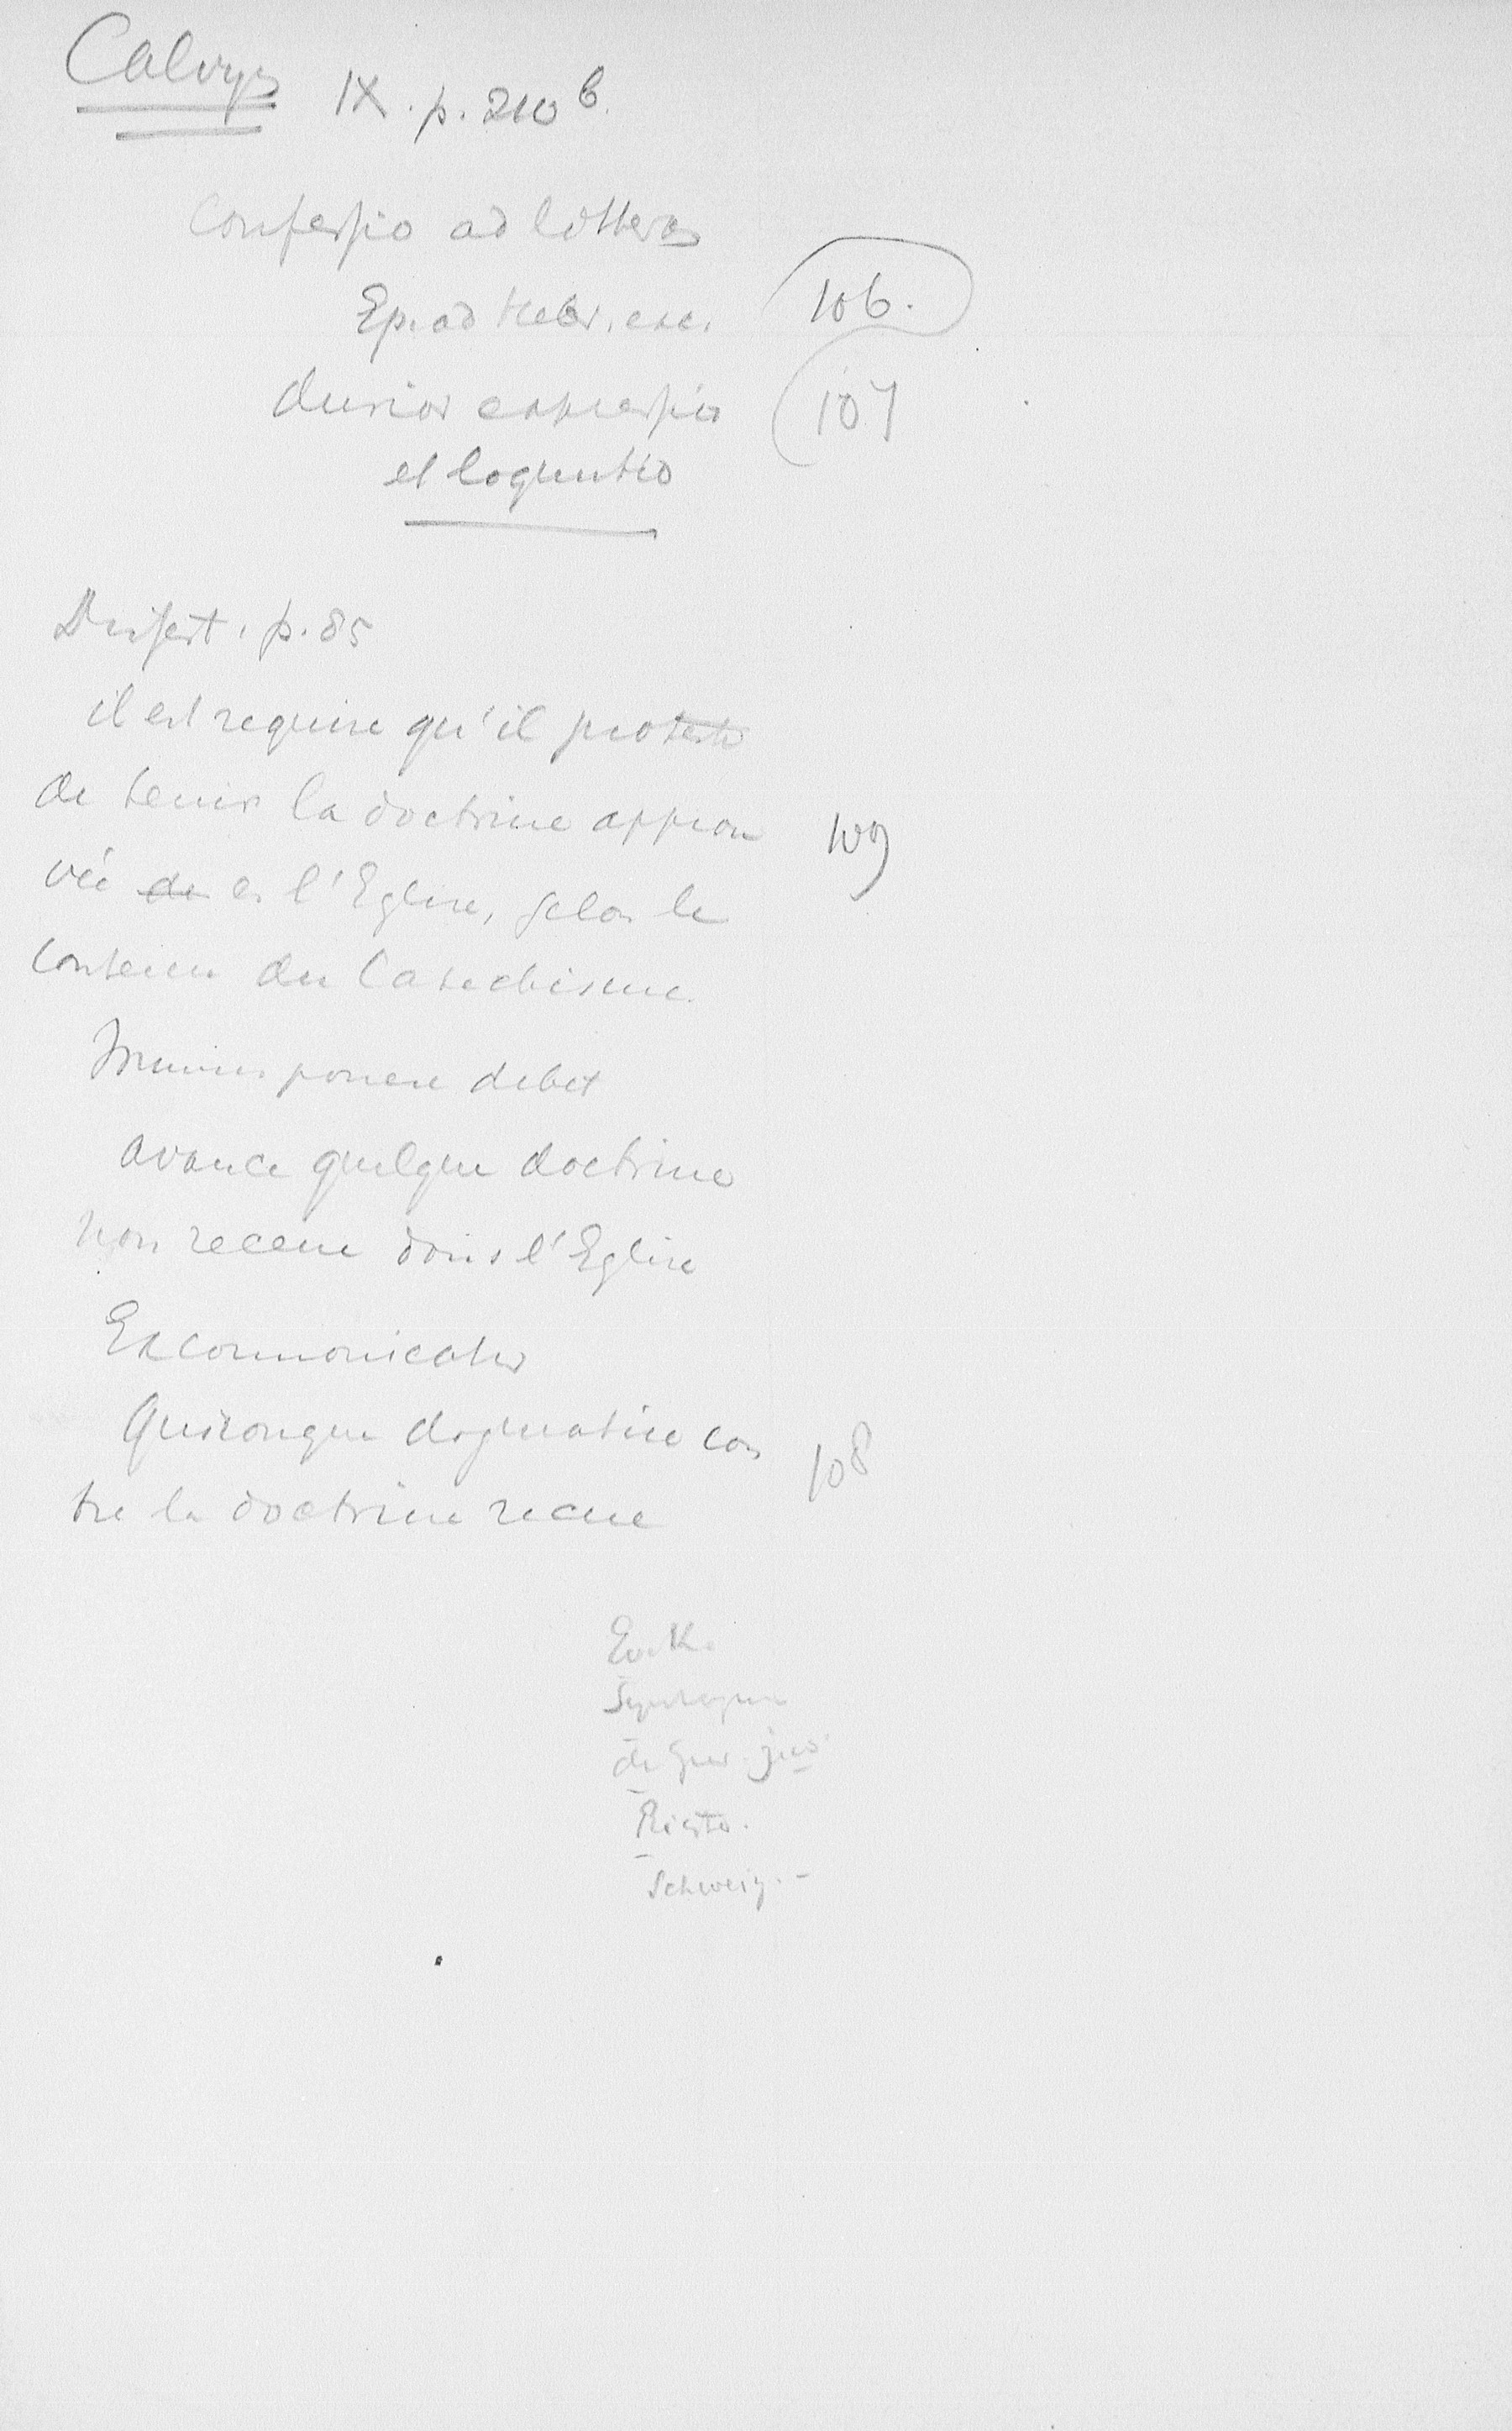 Calvyn IX. p. 210 b.
Confessio ad litteras
Ep. ad Hebr. exc. 106.
durior expressio 107
et loquutio
Dissert. p. 85
il est requise qu'il proteste
de tenir la doctrine approu 109
vée de en l'Eglise, selon le
contenu du Catechisme.
ponere debet
avance quelque doctrine
non receue dans l'Eglise
Excommonicatio
Quiconque dogmatise con 108
tre la doctrine recue
Ev. K.
Syntagma
de Ger.
Schweiz. -